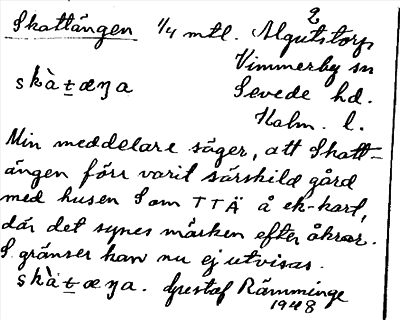 Skattängen 1/4 mtl. Algutstorp 2
Vimmerby sn
skàtæŋa Sevede hd.
Kalm. l.
Min meddelare säger, att Skatt-
ängen förr varit särskild gård
med husen S om TTÄ å ek-kart,
där det synes märken efter åkrar.
S. gränser kan nu ej utvisas.
skàtæŋa. Gustaf Rämminge
1948